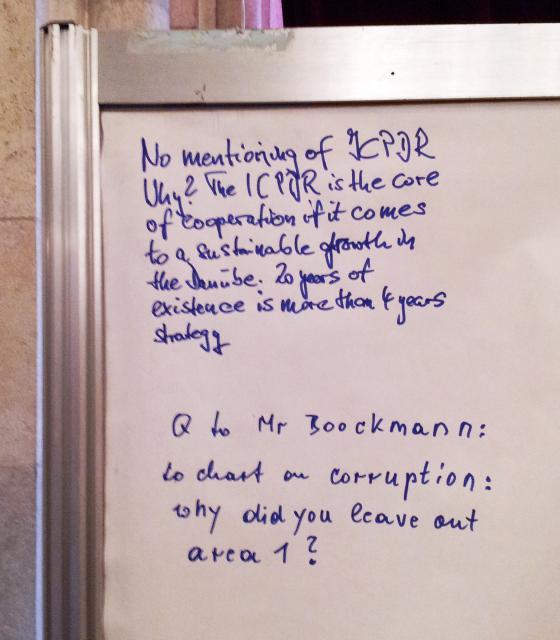 No mentioning of ICPDR
Why? The ICPDR is the core
of cooperation if it comes
to a sustainable growth in
the Danube. 20 years of
existence is more than 4 years
strategy
Q to Mr Boockmann:
to chart on corruption:
why did you leave out
area 1?